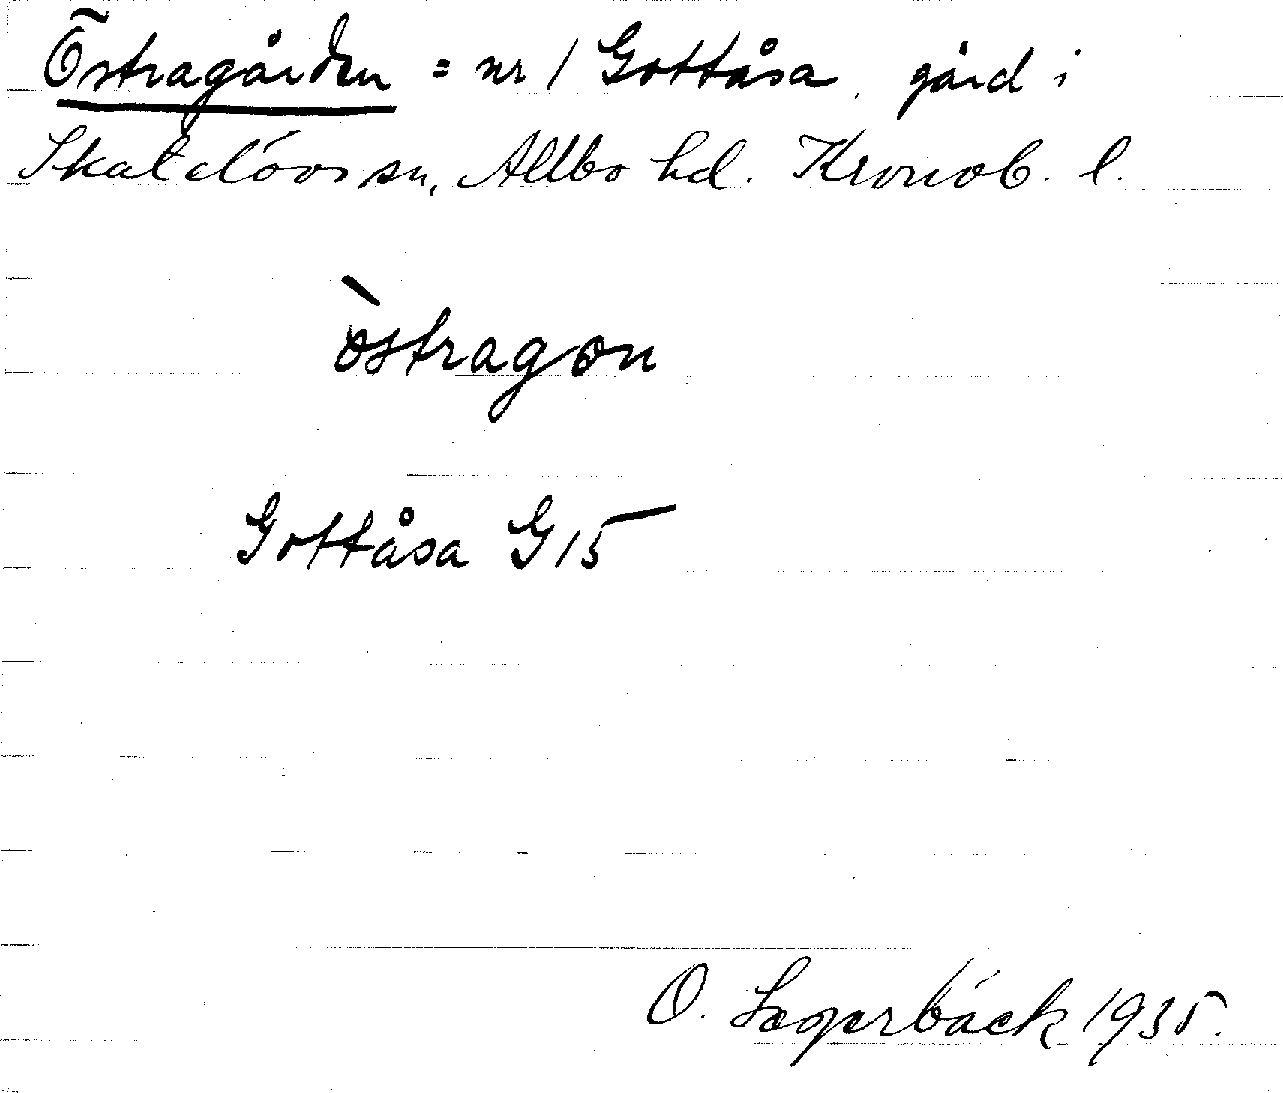 Östragården = nr 1 Gottåsa, gård i
Skatelövs sn, Allbo hd. Kronob. l.
`östragon
Gottåsa G 15
O. Lagerbäck 1935.